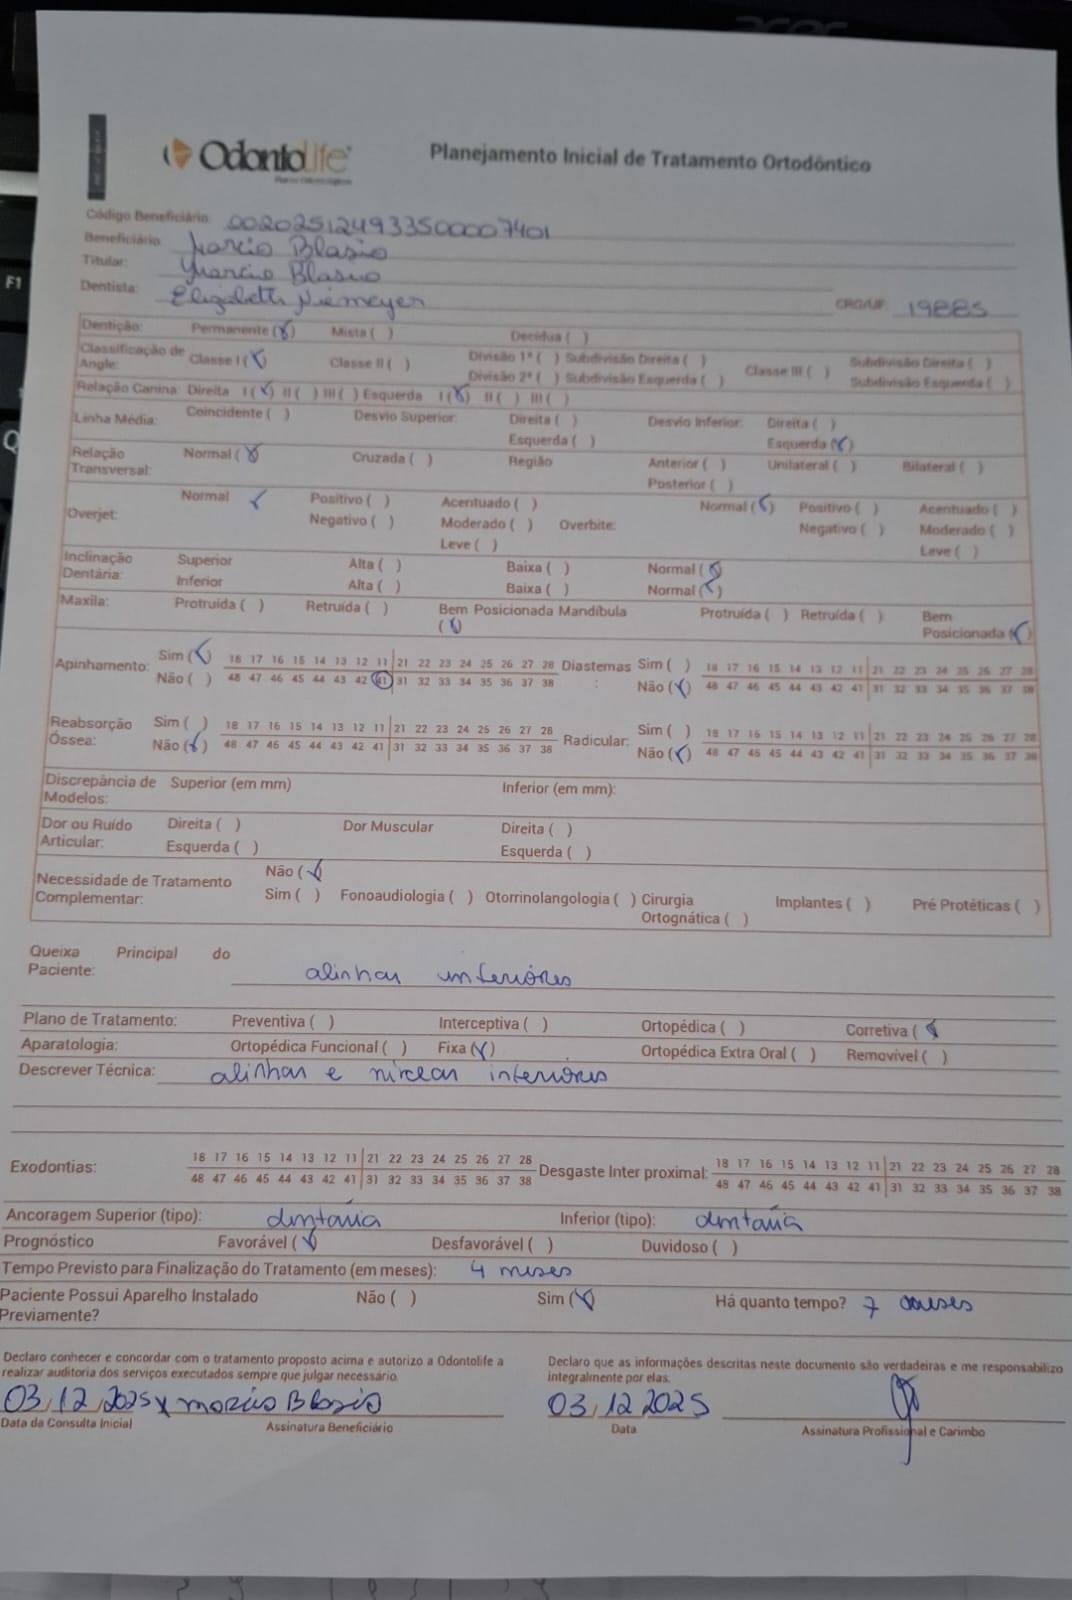 acer
OdontoLife
Planejamento Inicial de Tratamento Ortodôntico
Código Beneficiário: 002025124933500007401
Beneficiário: Marcio Blasio
Titular: Marcio Blasio
Dentista: Elizabeth Niemeyer CRO/UF: 19885
Dentição: Permanente (x) Mista ( ) Decídua ( )
Classificação de Angle: Classe I (x) Classe II ( ) Divisão 1ª ( ) Subdivisão Direita ( ) Classe III ( ) Subdivisão Direita ( )
Divisão 2ª ( ) Subdivisão Esquerda ( ) Subdivisão Esquerda ( )
Relação Canina: Direita I (x) II ( ) III ( ) Esquerda I (x) II ( ) III ( )
Linha Média: Coincidente ( ) Desvio Superior: Direita ( ) Desvio Inferior: Direita ( )
Esquerda ( ) Esquerda (x)
Relação Transversal: Normal (x) Cruzada ( ) Região Anterior ( ) Unilateral ( ) Bilateral ( )
Posterior ( )
Overjet: Normal Positivo ( ) Acentuado ( ) Overbite: Normal (x) Positivo ( ) Acentuado ( )
Negativo ( ) Moderado ( ) Negativo ( ) Moderado ( )
Leve ( ) Leve ( )
Inclinação Dentária: Superior Alta ( ) Baixa ( ) Normal (x)
Inferior Alta ( ) Baixa ( ) Normal (x)
Maxila: Protruída ( ) Retruída ( ) Bem Posicionada (x) Mandíbula Protruída ( ) Retruída ( ) Bem Posicionada (x)
Apinhamento: Sim (x) 18 17 16 15 14 13 12 11 21 22 23 24 25 26 27 28 Diastemas: Sim ( ) 18 17 16 15 14 13 12 11 21 22 23 24 25 26 27 28
Não ( ) 48 47 46 45 44 43 42 41 31 32 33 34 35 36 37 38 Não (x) 48 47 46 45 44 43 42 41 31 32 33 34 35 36 37 38
Reabsorção Óssea: Sim ( ) 18 17 16 15 14 13 12 11 21 22 23 24 25 26 27 28 Radicular: Sim ( ) 18 17 16 15 14 13 12 11 21 22 23 24 25 26 27 28
Não (x) 48 47 46 45 44 43 42 41 31 32 33 34 35 36 37 38 Não (x) 48 47 46 45 44 43 42 41 31 32 33 34 35 36 37 38
Discrepância de Modelos: Superior (em mm) Inferior (em mm):
Dor ou Ruído Articular: Direita ( ) Dor Muscular Direita ( )
Esquerda ( ) Esquerda ( )
Necessidade de Tratamento Complementar: Não (x)
Sim ( ) Fonoaudiologia ( ) Otorrinolangologia ( ) Cirurgia Ortognática ( ) Implantes ( ) Pré Protéticas ( )
Queixa Principal do Paciente: alinhar inferiores
Plano de Tratamento: Preventiva ( ) Interceptiva ( ) Ortopédica ( ) Corretiva (x
Aparatologia: Ortopédica Funcional ( ) Fixa (x) Ortopédica Extra Oral ( ) Removível ( )
Descrever Técnica: alinhar e nivelar inferiores
Exodontias: 18 17 16 15 14 13 12 11 21 22 23 24 25 26 27 28 Desgaste Inter proximal: 18 17 16 15 14 13 12 11 21 22 23 24 25 26 27 28
48 47 46 45 44 43 42 41 31 32 33 34 35 36 37 38 48 47 46 45 44 43 42 41 31 32 33 34 35 36 37 38
Ancoragem Superior (tipo): dentária Inferior (tipo): dentária
Prognóstico Favorável (x) Desfavorável ( ) Duvidoso ( )
Tempo Previsto para Finalização do Tratamento (em meses): 4 meses
Paciente Possui Aparelho Instalado Previamente? Não ( ) Sim (x) Há quanto tempo? 7 meses
Declaro conhecer e concordar com o tratamento proposto acima e autorizo a Odontolife a realizar auditoria dos serviços executados sempre que julgar necessário.
Declaro que as informações descritas neste documento são verdadeiras e me responsabilizo integralmente por elas.
03/12/2025 x Marcio Blasio 03/12 2025
Data da Consulta Inicial Assinatura Beneficiário Data Assinatura Profissional e Carimbo
F1
Q